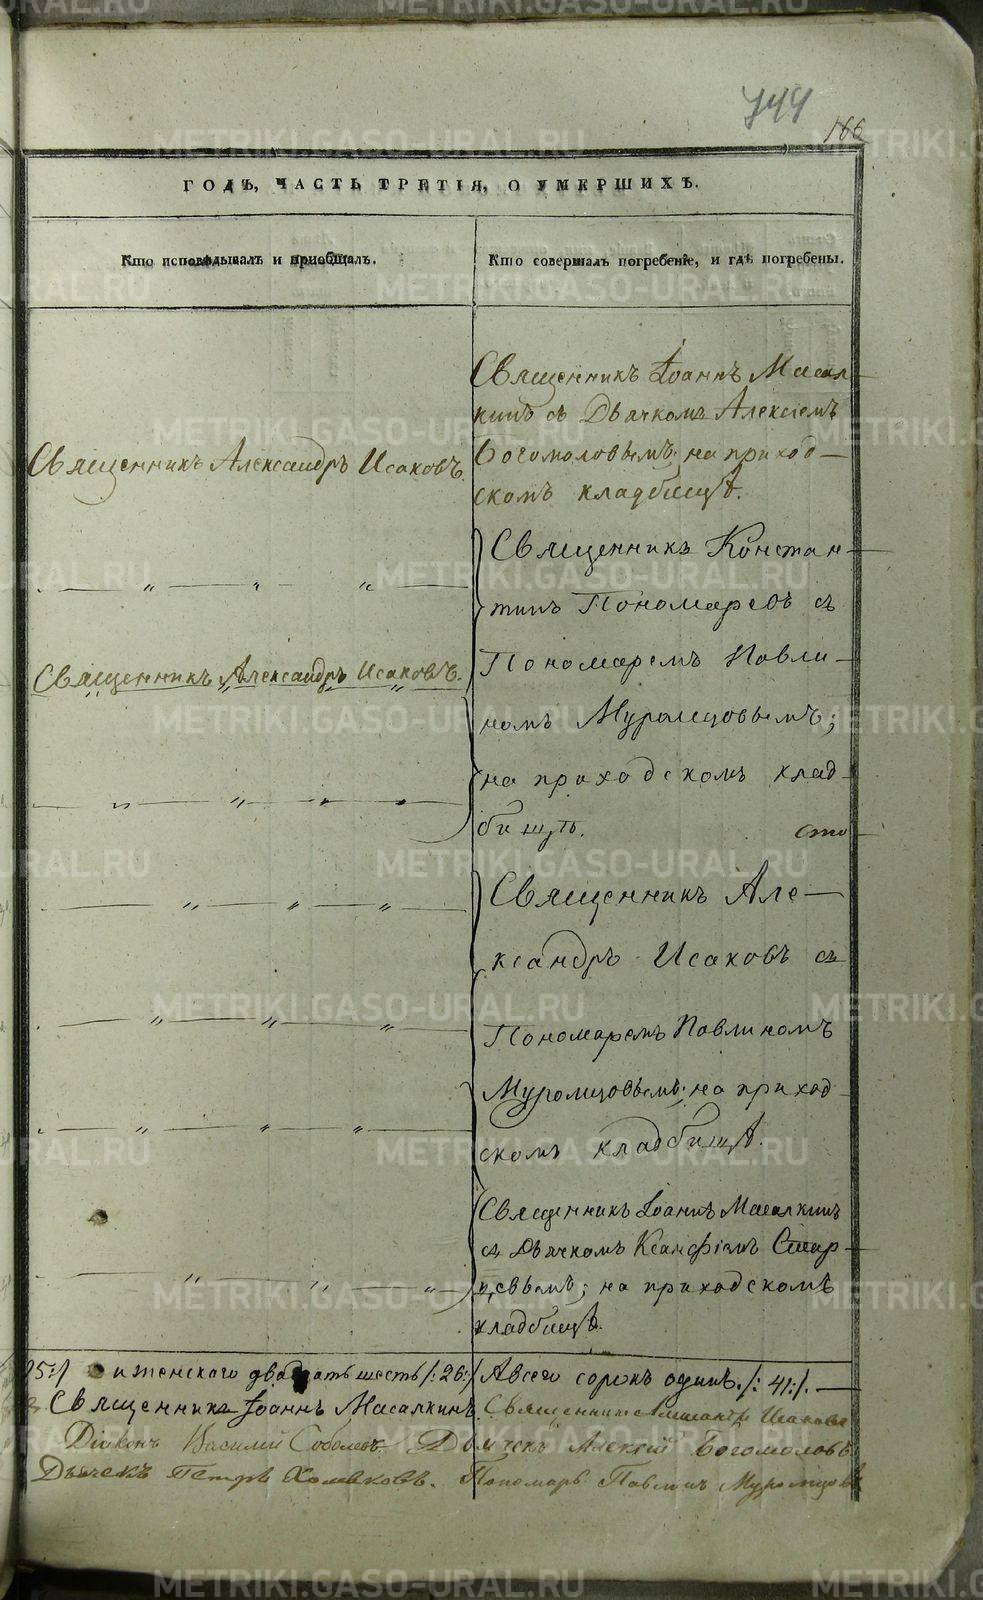 744
166
ГОДЪ, ЧАСТЬ ТРЕТІЯ, О УМЕРШИХЪ.
Кто исповѣдывалъ и пріобщалъ.
Кто совершалъ погребеніе, и гдѣ погребены.
Священникъ Іоаннъ Масал-
кинъ съ Дьячкомъ Алексіемъ
Богомоловымъ; на приход-
скомъ кладбищѣ.
Священникъ Александръ Исаковъ.
Священникъ Констан-
тинъ Пономаревъ съ
Пономаремъ Павли-
номъ Муромцовымъ;
на приходскомъ клад-
бищѣ.
сто-
— „ — „ — „ —
Священникъ Александръ Исаковъ.
— „ — „ — „ —
Священникъ Але-
ксандръ Исаковъ съ
Пономаремъ Павлиномъ
Муромцовымъ; на приход-
скомъ кладбищѣ.
— „ — „ — „ —
— „ — „ — „ —
— „ — „ — „ —
Священникъ Іоаннъ Масалкинъ
съ Дьячкомъ Ксанфіемъ Стар-
цевымъ; на приходскомъ
кладбищѣ.
— „ — „ — „ —
15:/ и женскаго двадцать шесть /:26:/ А всего сорокъ одинъ. /: 41:/. —
Священникъ Іоаннъ Масалкинъ. Священникъ Александръ Исаковъ
Діаконъ Василій Соболевъ. Дьячекъ Алексій Богомоловъ
Дьячекъ Петръ Хомяковъ. Пономарь Павлинъ Муромцовъ
METRIKI.GASO-URAL.RU